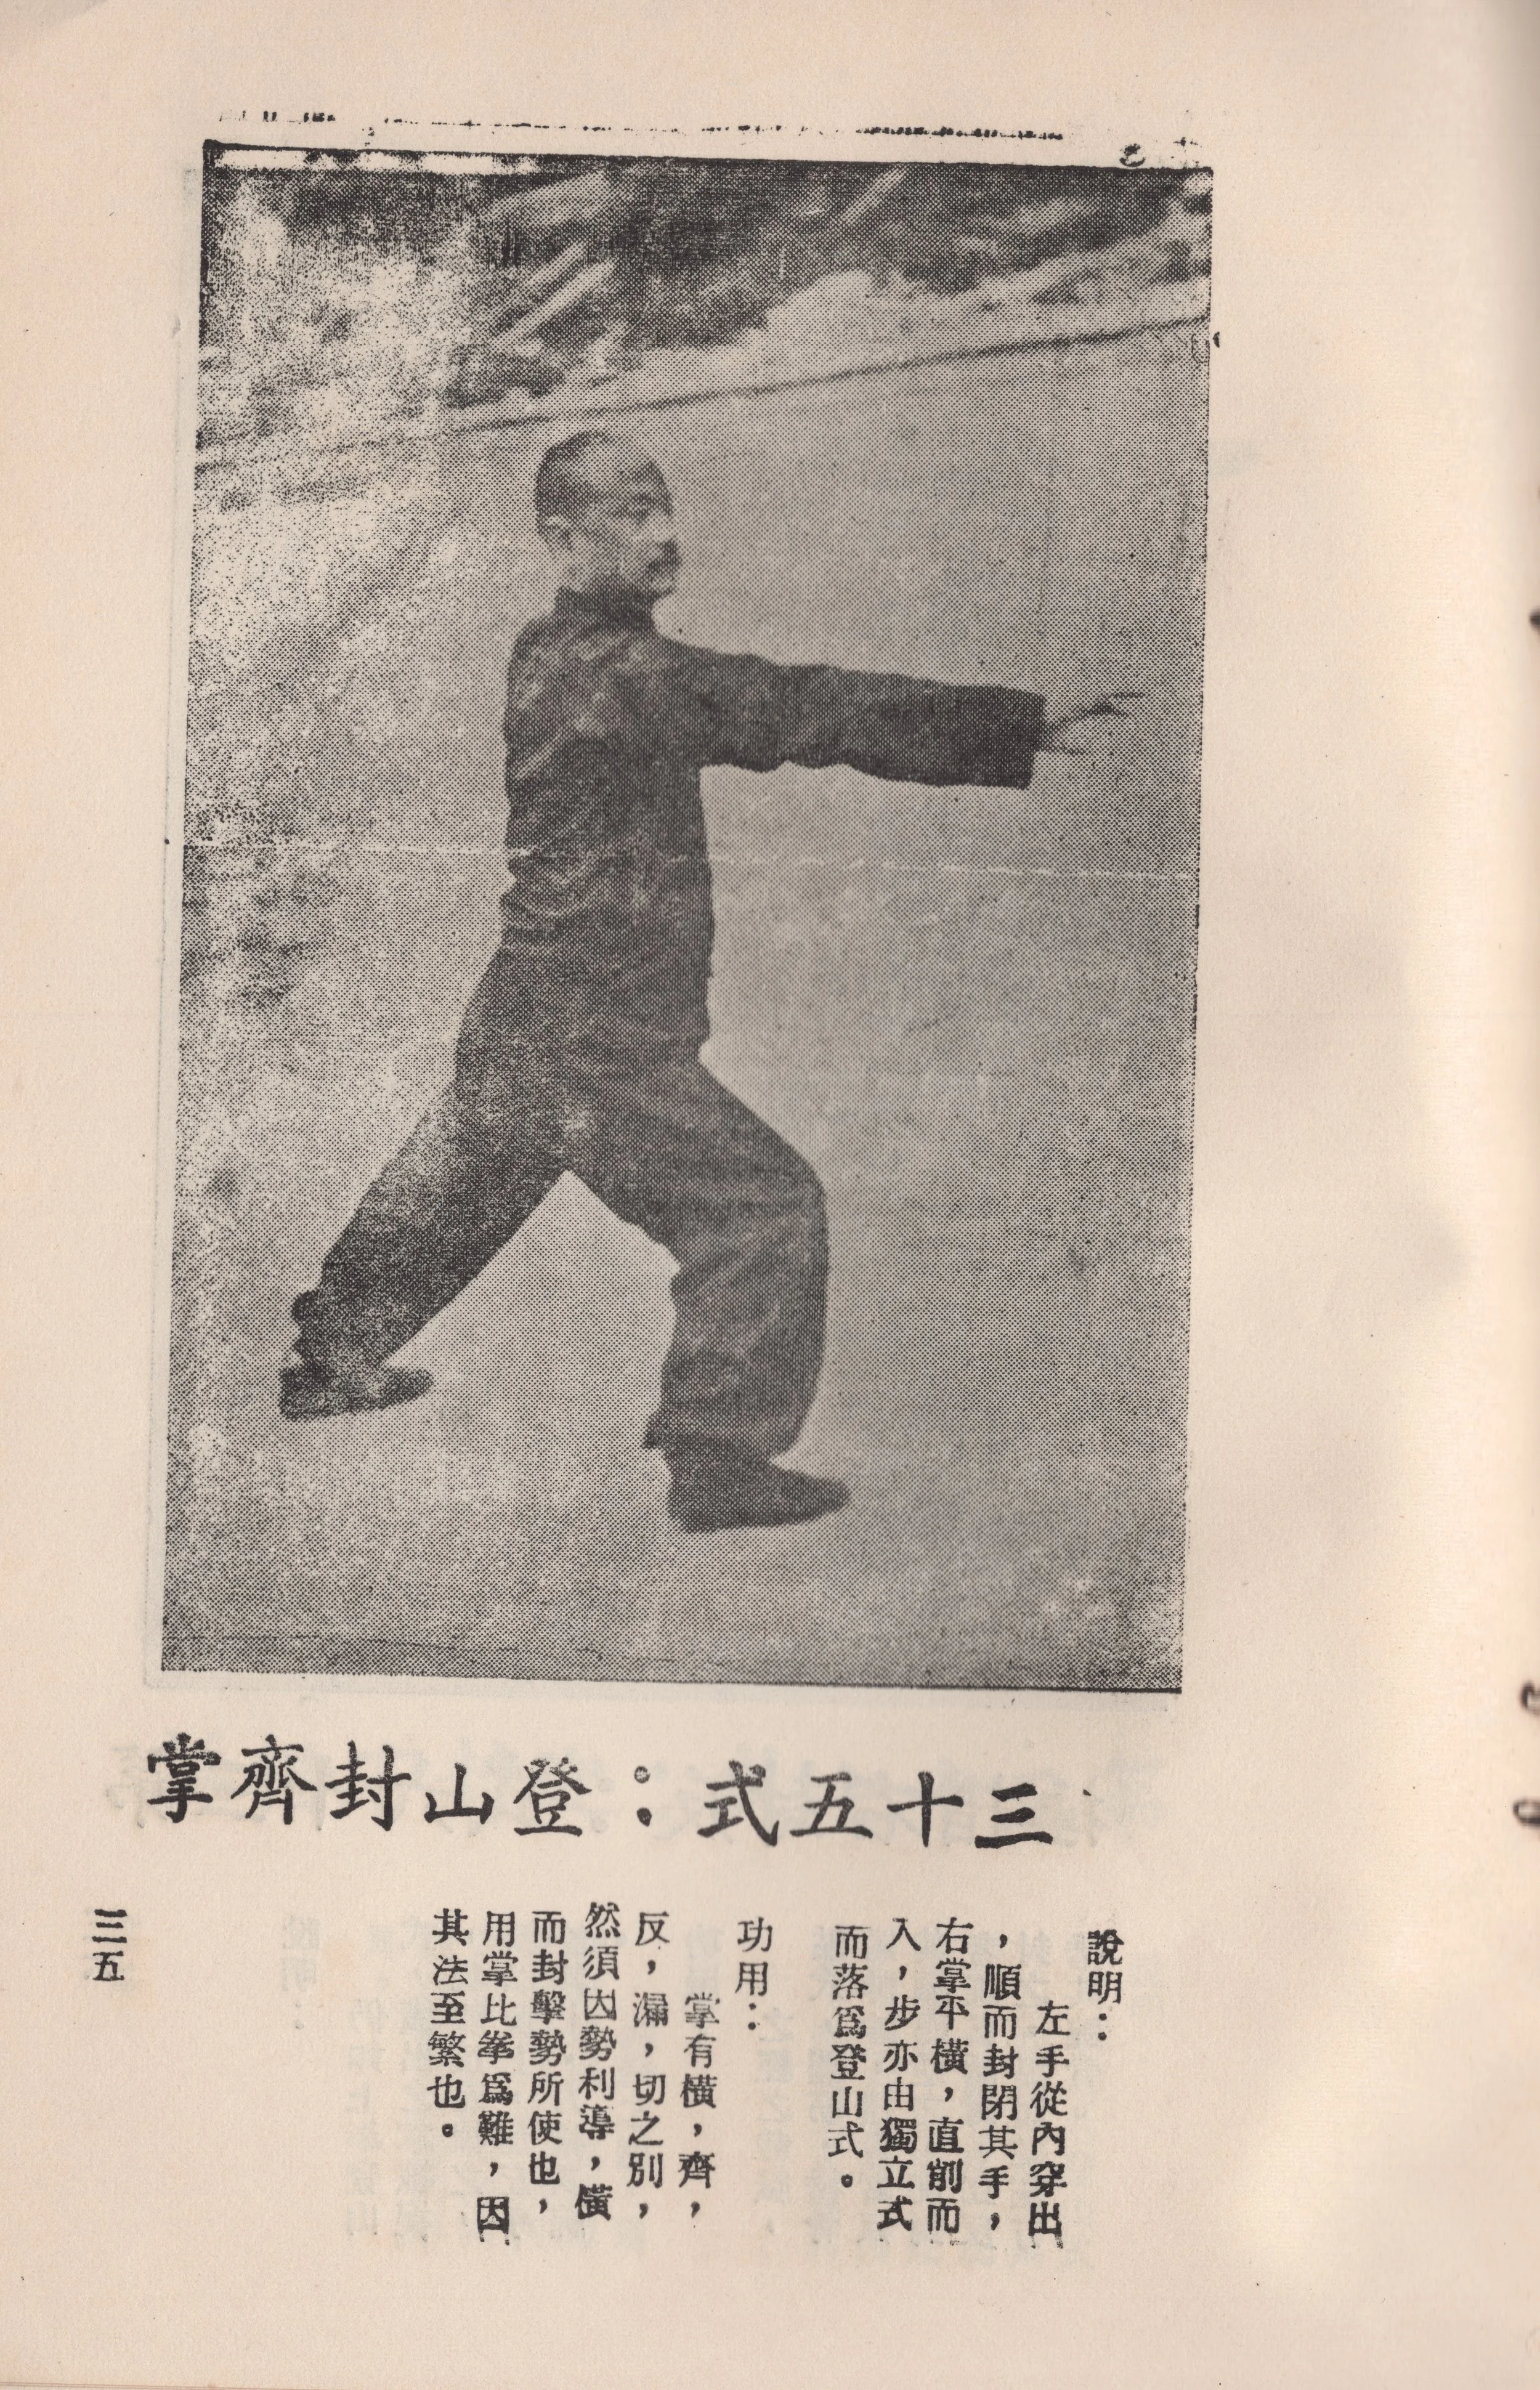 三十五式：登山封齊掌
說明：
左手從內穿出
，順而封閉其手，
右掌平橫，直削而
入，步亦由獨立式
而落爲登山式。
功用：
掌有橫，齊，
反，漏，切之別，
然須因勢利導，橫
而封擊勢所使也，
用掌比拳爲難，因
其法至繁也。
三五